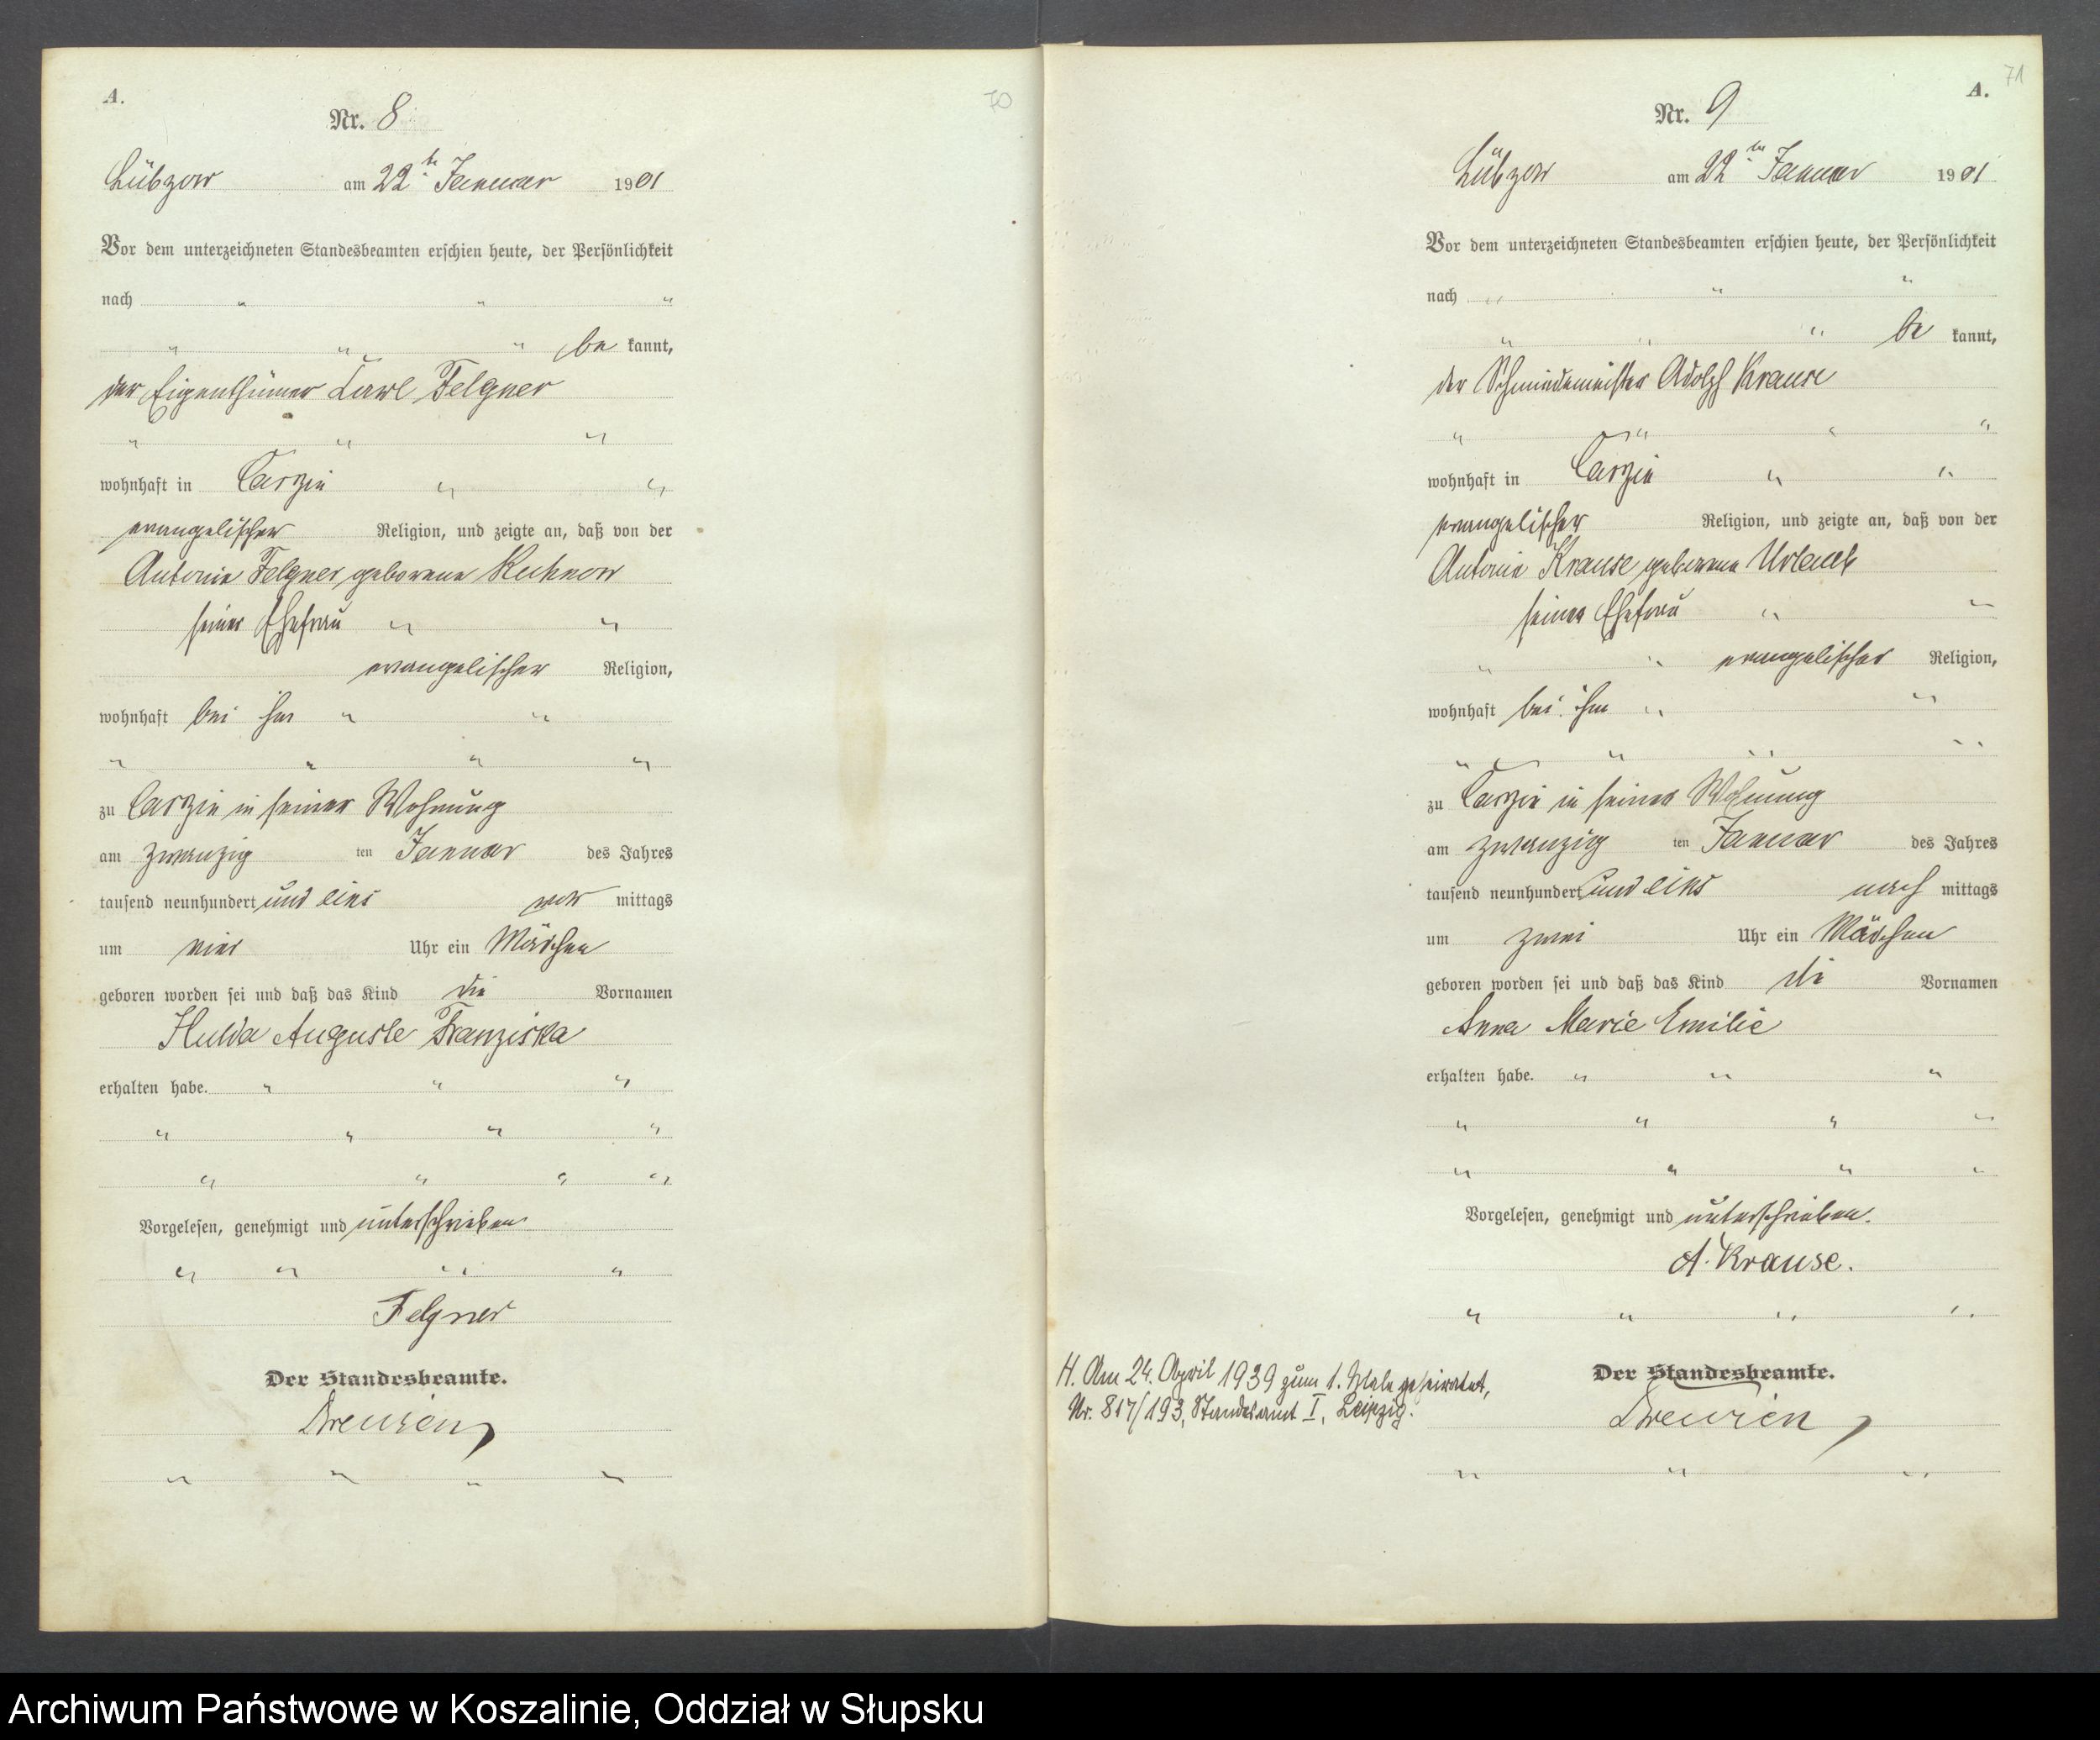 A.
70
Nr. 8
Lübzow am 22ten Januar 1901
Vor dem unterzeichneten Standesbeamten erschien heute, der Persönlichkeit
nach " " "
" " " be kannt,
der Eigenthümer Carl Felgner
" " "
wohnhaft in Carzin " "
evangelischer Religion, und zeigte an, daß von der
Antonie Felgner geborene
seiner Ehefrau " "
evangelischer Religion,
wohnhaft bei ihm " "
" " " "
zu Carzin in seiner Wohnung
am zwanzig ten Januar des Jahres
tausend neunhundert und eins vor mittags
um vier Uhr ein Mädchen
geboren worden sei und daß das Kind die Vornamen
Hulda Auguste Franziska
erhalten habe. " " "
" " " "
" " " "
Vorgelesen, genehmigt und unterschrieben
" " " "
Felgner
Der Standesbeamte.
" " " "
71
A.
Nr. 9
Lübzow am 22ten Januar 1901
Vor dem unterzeichneten Standesbeamten erschien heute, der Persönlichkeit
nach " " "
" " " be kannt,
der Schmiedemeister Adolf Krause
" " " "
wohnhaft in Carzin " "
evangelischer Religion, und zeigte an, daß von der
Antonie Krause geborene
seiner Ehefrau " "
" " evangelischer Religion,
wohnhaft bei ihm " "
" " " "
zu Carzin in seiner Wohnung
am zwanzig ten Januar des Jahres
tausend neunhundert und eins nach mittags
um zwei Uhr ein Mädchen
geboren worden sei und daß das Kind die Vornamen
Anna Marie Emilie
erhalten habe. " " "
" " " "
" " " "
Vorgelesen, genehmigt und unterschrieben.
A. Krause.
" " " "
H. Am 24. April 1939 zum 1. Male geheiratet,
Nr. 817/193, Standesamt I, Leipzig.
Der Standesbeamte.
" " "
Archiwum Państwowe w Koszalinie, Oddział w Słupsku